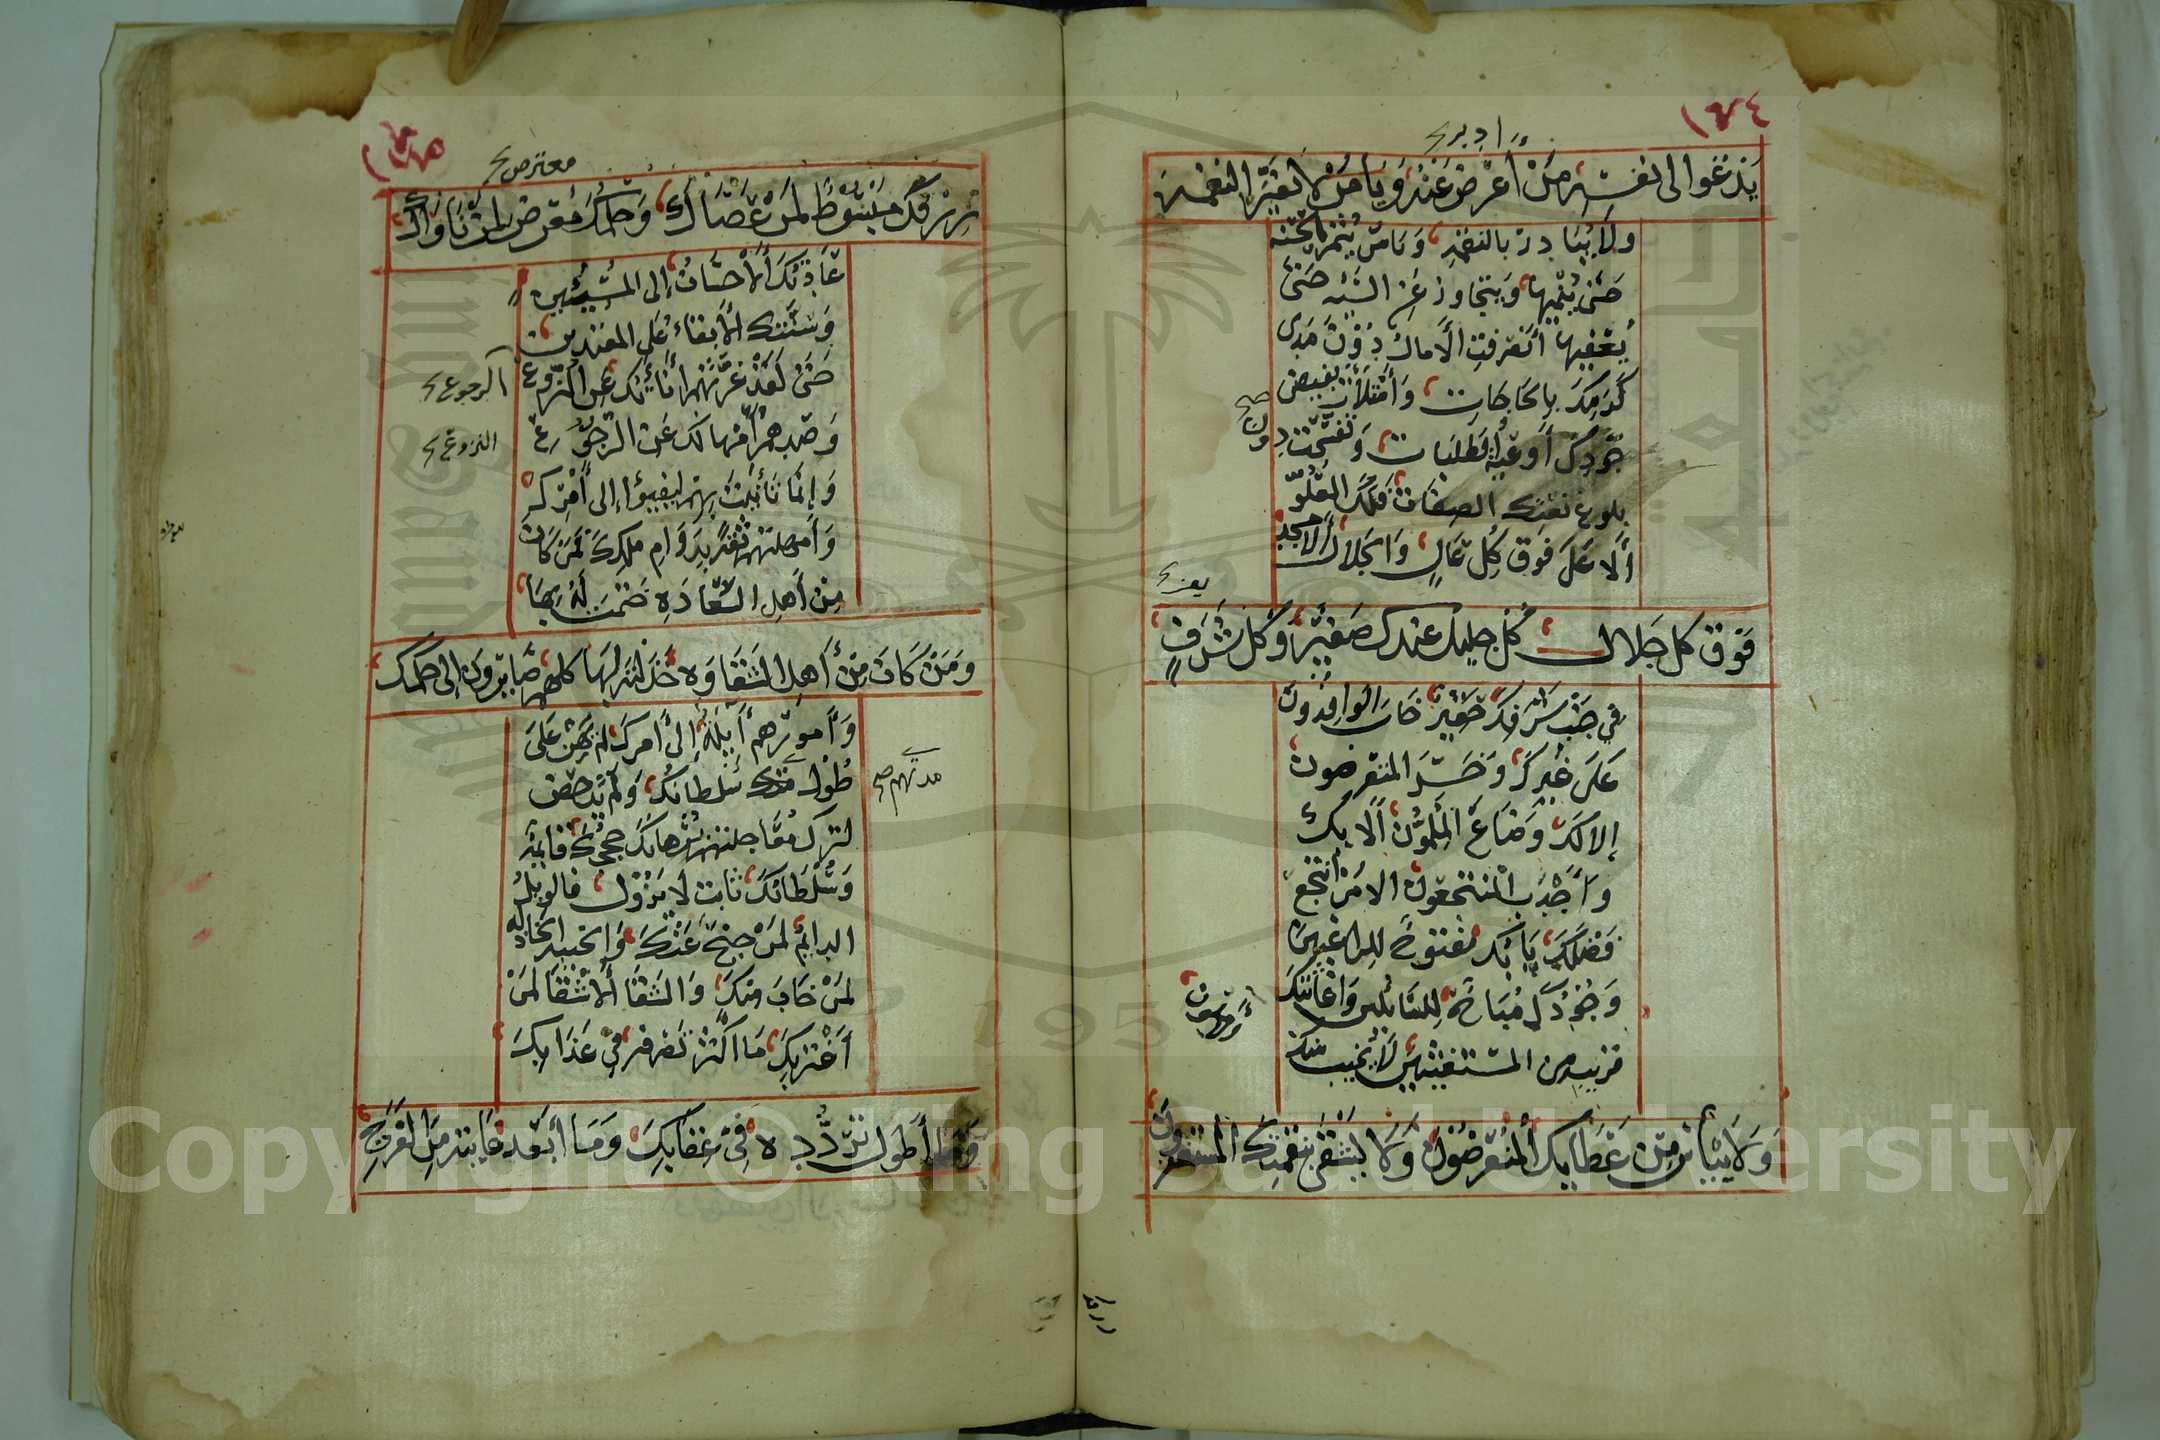 ١٧٤
أدبر
يدعوا الى نفسه من أعرض عنه ويا من لا يغير النعمة
ولا يبادر بالنقمة ويا من يثمر الحسنة
حتى ينميها ويتجاوز عن السيئة حتى
يعفيها أنصرفت الآمال دون مدى
كرمك بالحاجات وأمتلأت بفيض
جودك أوعية الطلبات وتفسخت دون
بلوغ نعتك الصفات فلك العلو
ألاعلى فوق كل عال والجلال الامجد
فوق كل جلال كل جليل عندك صغير وكل شرف
في جنب شرفك حقير خاب الوافدون
على غيرك وخسر المتعرضون
إلا لك وضاع الملمون ألا بك
وأجدب المنتجعون الا من أنتجع
فضلك بابك مفتوح للراغبين
وجودك مباح للسائلين وإغاثتك
قريبة من المستغيثين لا يخيب منك
ولا ييأس من عطائك المتعرضون ولا يشقى بنقمتك المستغفرون
رزقك
١٧٥
معترض
رزقك مبسوط لمن عصاك وحلمك معرض لمن ناواك
عادتك ألأحسان إلى المسيئين
وسنتك الأبقاء على المعتدين
حتى لقد غرتهم أناتك عن النزوع
الرجوع
وصدهم أمهالك عن الرجوع
النزوع
وإنما تأنيت بهم ليفيئوا إلى أمرك
وأمهلتهم ثقة بدوام ملكك فمن كان
من أهل السعادة ختمت له بها
ومن كان من أهل الشقاوة خذلته لها كلهم صايرون إلى حكمك
وأمورهم أيلة إلى أمرك لم يهن على
طول مدتهم سلطانك ولم يدحض
مدتهم صح
لترك معاجلتهم برهانك حجتك قايمة
وسلطانك ثابت لا يزول فالويل
الدايم لمن جنح عنك والخيبة الخاذلة
لمن خاب منك والشقا ألاشقا لمن
أغتر بك ما اكثر تصرفه في عذابك
وما أطول تردده في عقابك وما أبعد غايته من الفرج